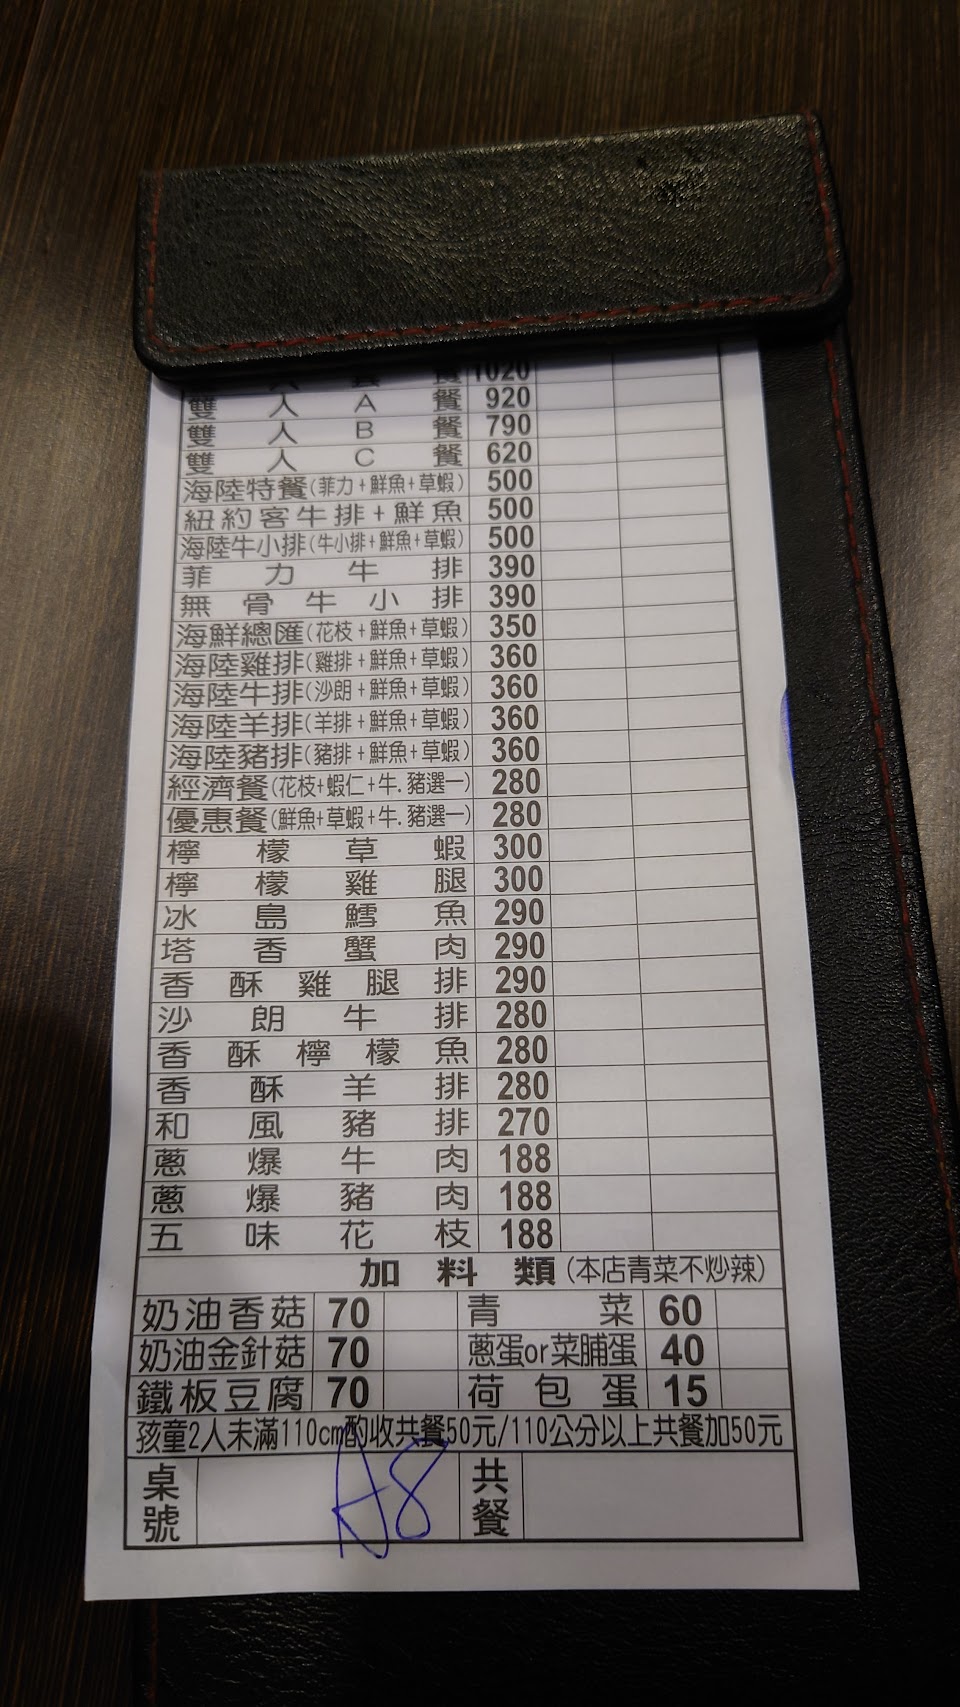 餐 1020
雙人A餐 920
雙人B餐 790
雙人C餐 620
海陸特餐(菲力+鮮魚+草蝦) 500
紐約客牛排+鮮魚 500
海陸牛小排(牛小排+鮮魚+草蝦) 500
菲力牛排 390
無骨牛小排 390
海鮮總匯(花枝+鮮魚+草蝦) 350
海陸雞排(雞排+鮮魚+草蝦) 360
海陸牛排(沙朗+鮮魚+草蝦) 360
海陸羊排(羊排+鮮魚+草蝦) 360
海陸豬排(豬排+鮮魚+草蝦) 360
經濟餐(花枝+蝦仁+牛.豬選一) 280
優惠餐(鮮魚+草蝦+牛.豬選一) 280
檸檬草蝦 300
檸檬雞腿 300
冰島鱈魚 290
塔香蟹肉 290
香酥雞腿排 290
沙朗牛排 280
香酥檸檬魚 280
香酥羊排 280
和風豬排 270
蔥爆牛肉 188
蔥爆豬肉 188
五味花枝 188
加料類(本店青菜不炒辣)
奶油香菇 70 青菜 60
奶油金針菇 70 蔥蛋or菜脯蛋 40
鐵板豆腐 70 荷包蛋 15
孩童2人未滿110cm酌收共餐50元/110公分以上共餐加50元
桌號 A8 共餐